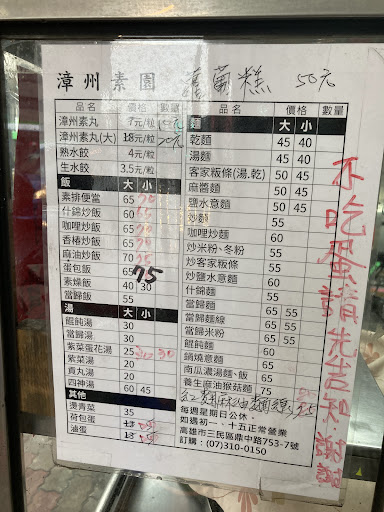 漳州素園 蘿蔔糕 50元
品名 價格 數量
漳州素丸 7元/粒
漳州素丸(大) 18元/粒 20元
熟水餃 4元/粒
生水餃 3.5元/粒
飯 大 小
素排便當 65 70
什錦炒飯 60
咖哩炒飯 65 70
香椿炒飯 65 70
麻油炒飯 70
蛋包飯 65 75
素燥飯 40 30
當歸飯 55
湯 大 小
餛飩湯 30
當歸湯 30
紫菜蛋花湯 25 30
紫菜湯 20
貢丸湯 20
四神湯 60 45
其他
燙青菜 35
荷包蛋
滷蛋
品名 價格 數量
麵 大 小
乾麵 45 40
湯麵 45 40
客家粄條(湯.乾) 50 45
麻醬麵 50 45
鹽水意麵 50 45
炒麵 55
咖哩炒麵 60
炒米粉、冬粉 55
炒客家粄條 55
炒鹽水意麵 60
什錦麵 55
當歸麵 65 55
當歸麵線 65 55
當歸米粉 65 55
餛飩麵 60
鍋燒意麵 60
南瓜濃湯麵、飯 65
養生麻油猴菇麵 75
紅麴麻油麵線
每週星期日公休。
如週初一、十五正常營業
高雄市三民區鼎中路753-7號
訂購：(07)310-0150
不吃薑請先告知.謝謝